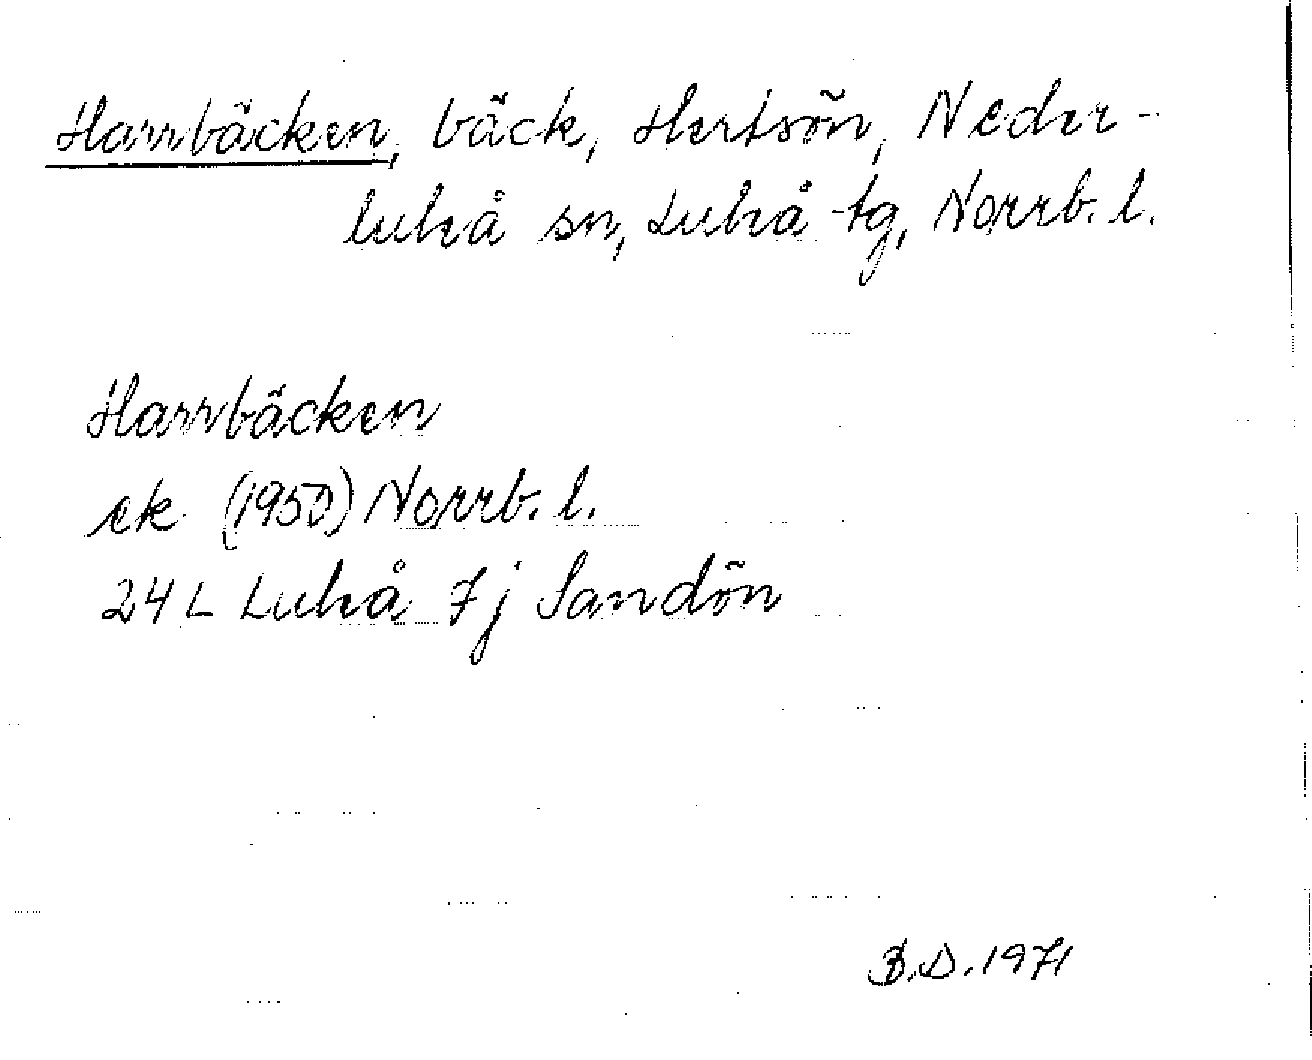 Harrbäcken, bäck, Hertsön, Neder-
luleå sn, Luleå tg, Norrb. l.
Harrbäcken
ek (1950) Norrb. l.
24 L Luleå 7 j Sandön
B.D. 1971